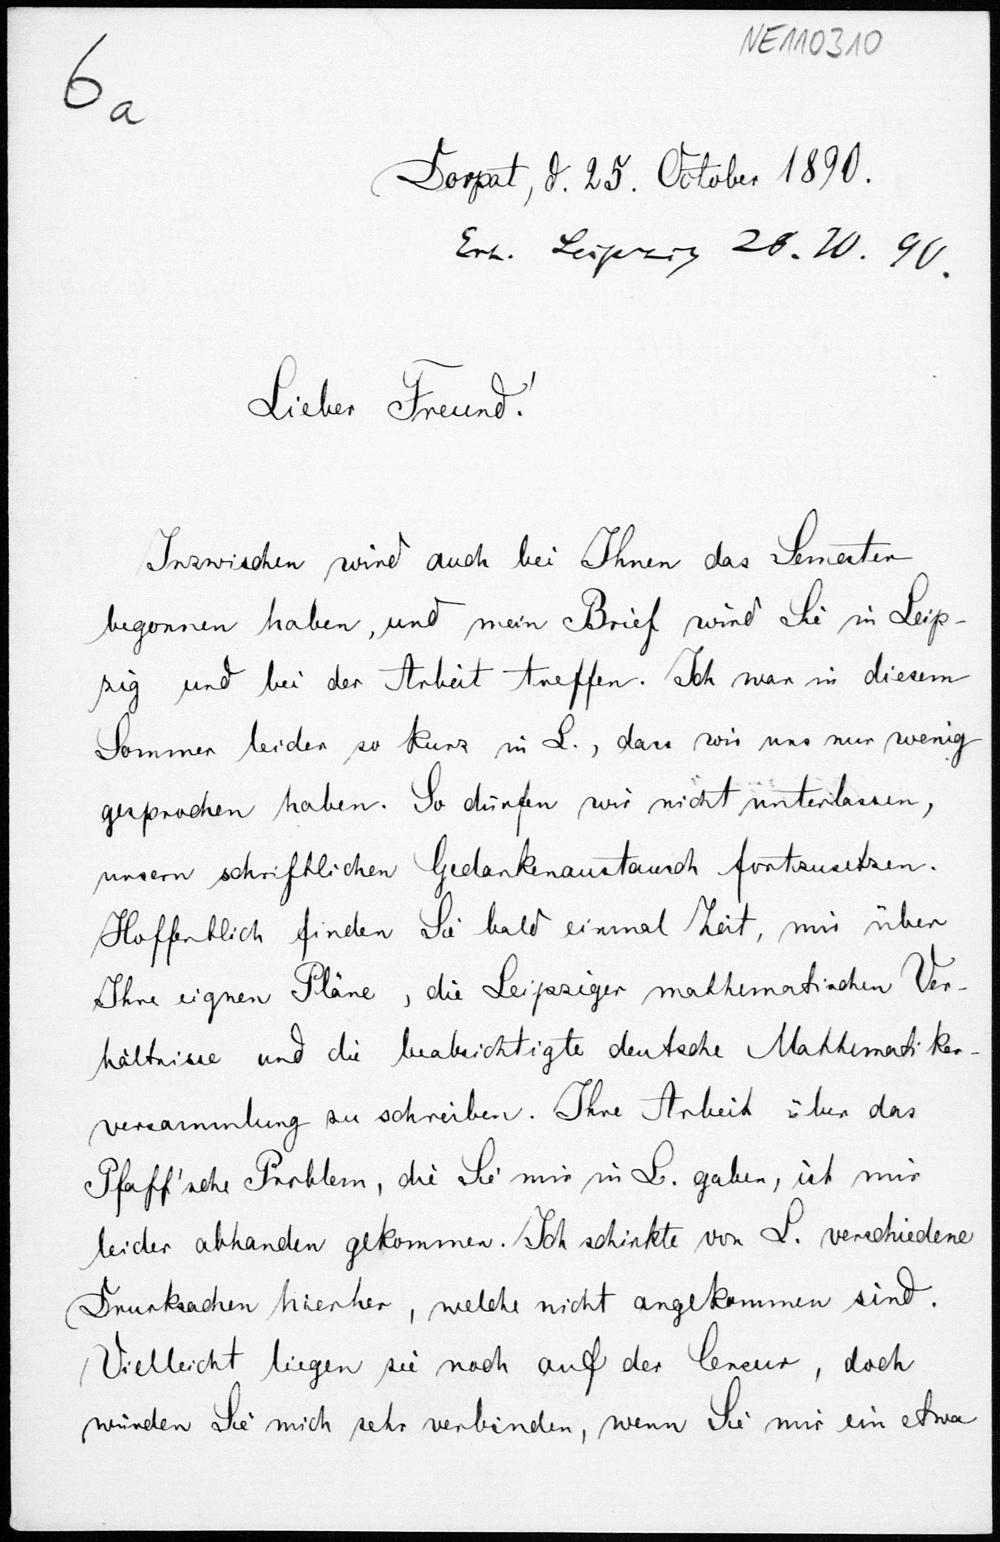 NE110310
6a
Dorpat, d. 25. October 1890.
Erh. Leipzig 28. 10. 90.
Lieber Freund!
Inzwischen wird auch bei Ihnen das Semester
begonnen haben, und mein Brief wird Sie in Leip-
zig und bei der Arbeit treffen. Ich war in diesem
Sommer leider so kurz in L., dass wir uns nur wenig
gesprochen haben. So dürfen wir nicht unterlassen,
unsern schriftlichen Gedankenaustausch fortzusetzen.
Hoffentlich finden Sie bald einmal Zeit, mir über
Ihre eignen Pläne, die Leipziger mathematischen Ver-
hältnisse und die beabsichtigte deutsche Mathematiker-
versammlung zu schreiben. Ihre Arbeit über das
Pfaff'sche Problem, die Sie mir in L. gaben, ist mir
leider abhanden gekommen. Ich schickte von L. verschiedene
Drucksachen hierher, welche nicht angekommen sind.
Vielleicht liegen sie noch auf der Censur, doch
würden Sie mich sehr verbinden, wenn Sie mir ein etwa